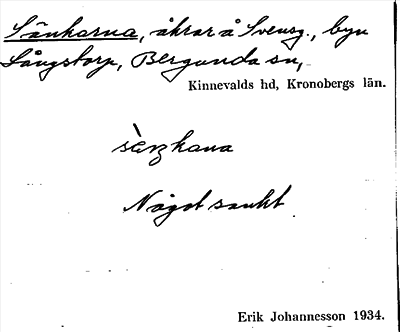 Sänkorna, åkrar å Svensg., byn
Långstorp, Bergunda sn,
Kinnevalds hd, Kronobergs län.
Något sankt
Erik Johannesson 1934.